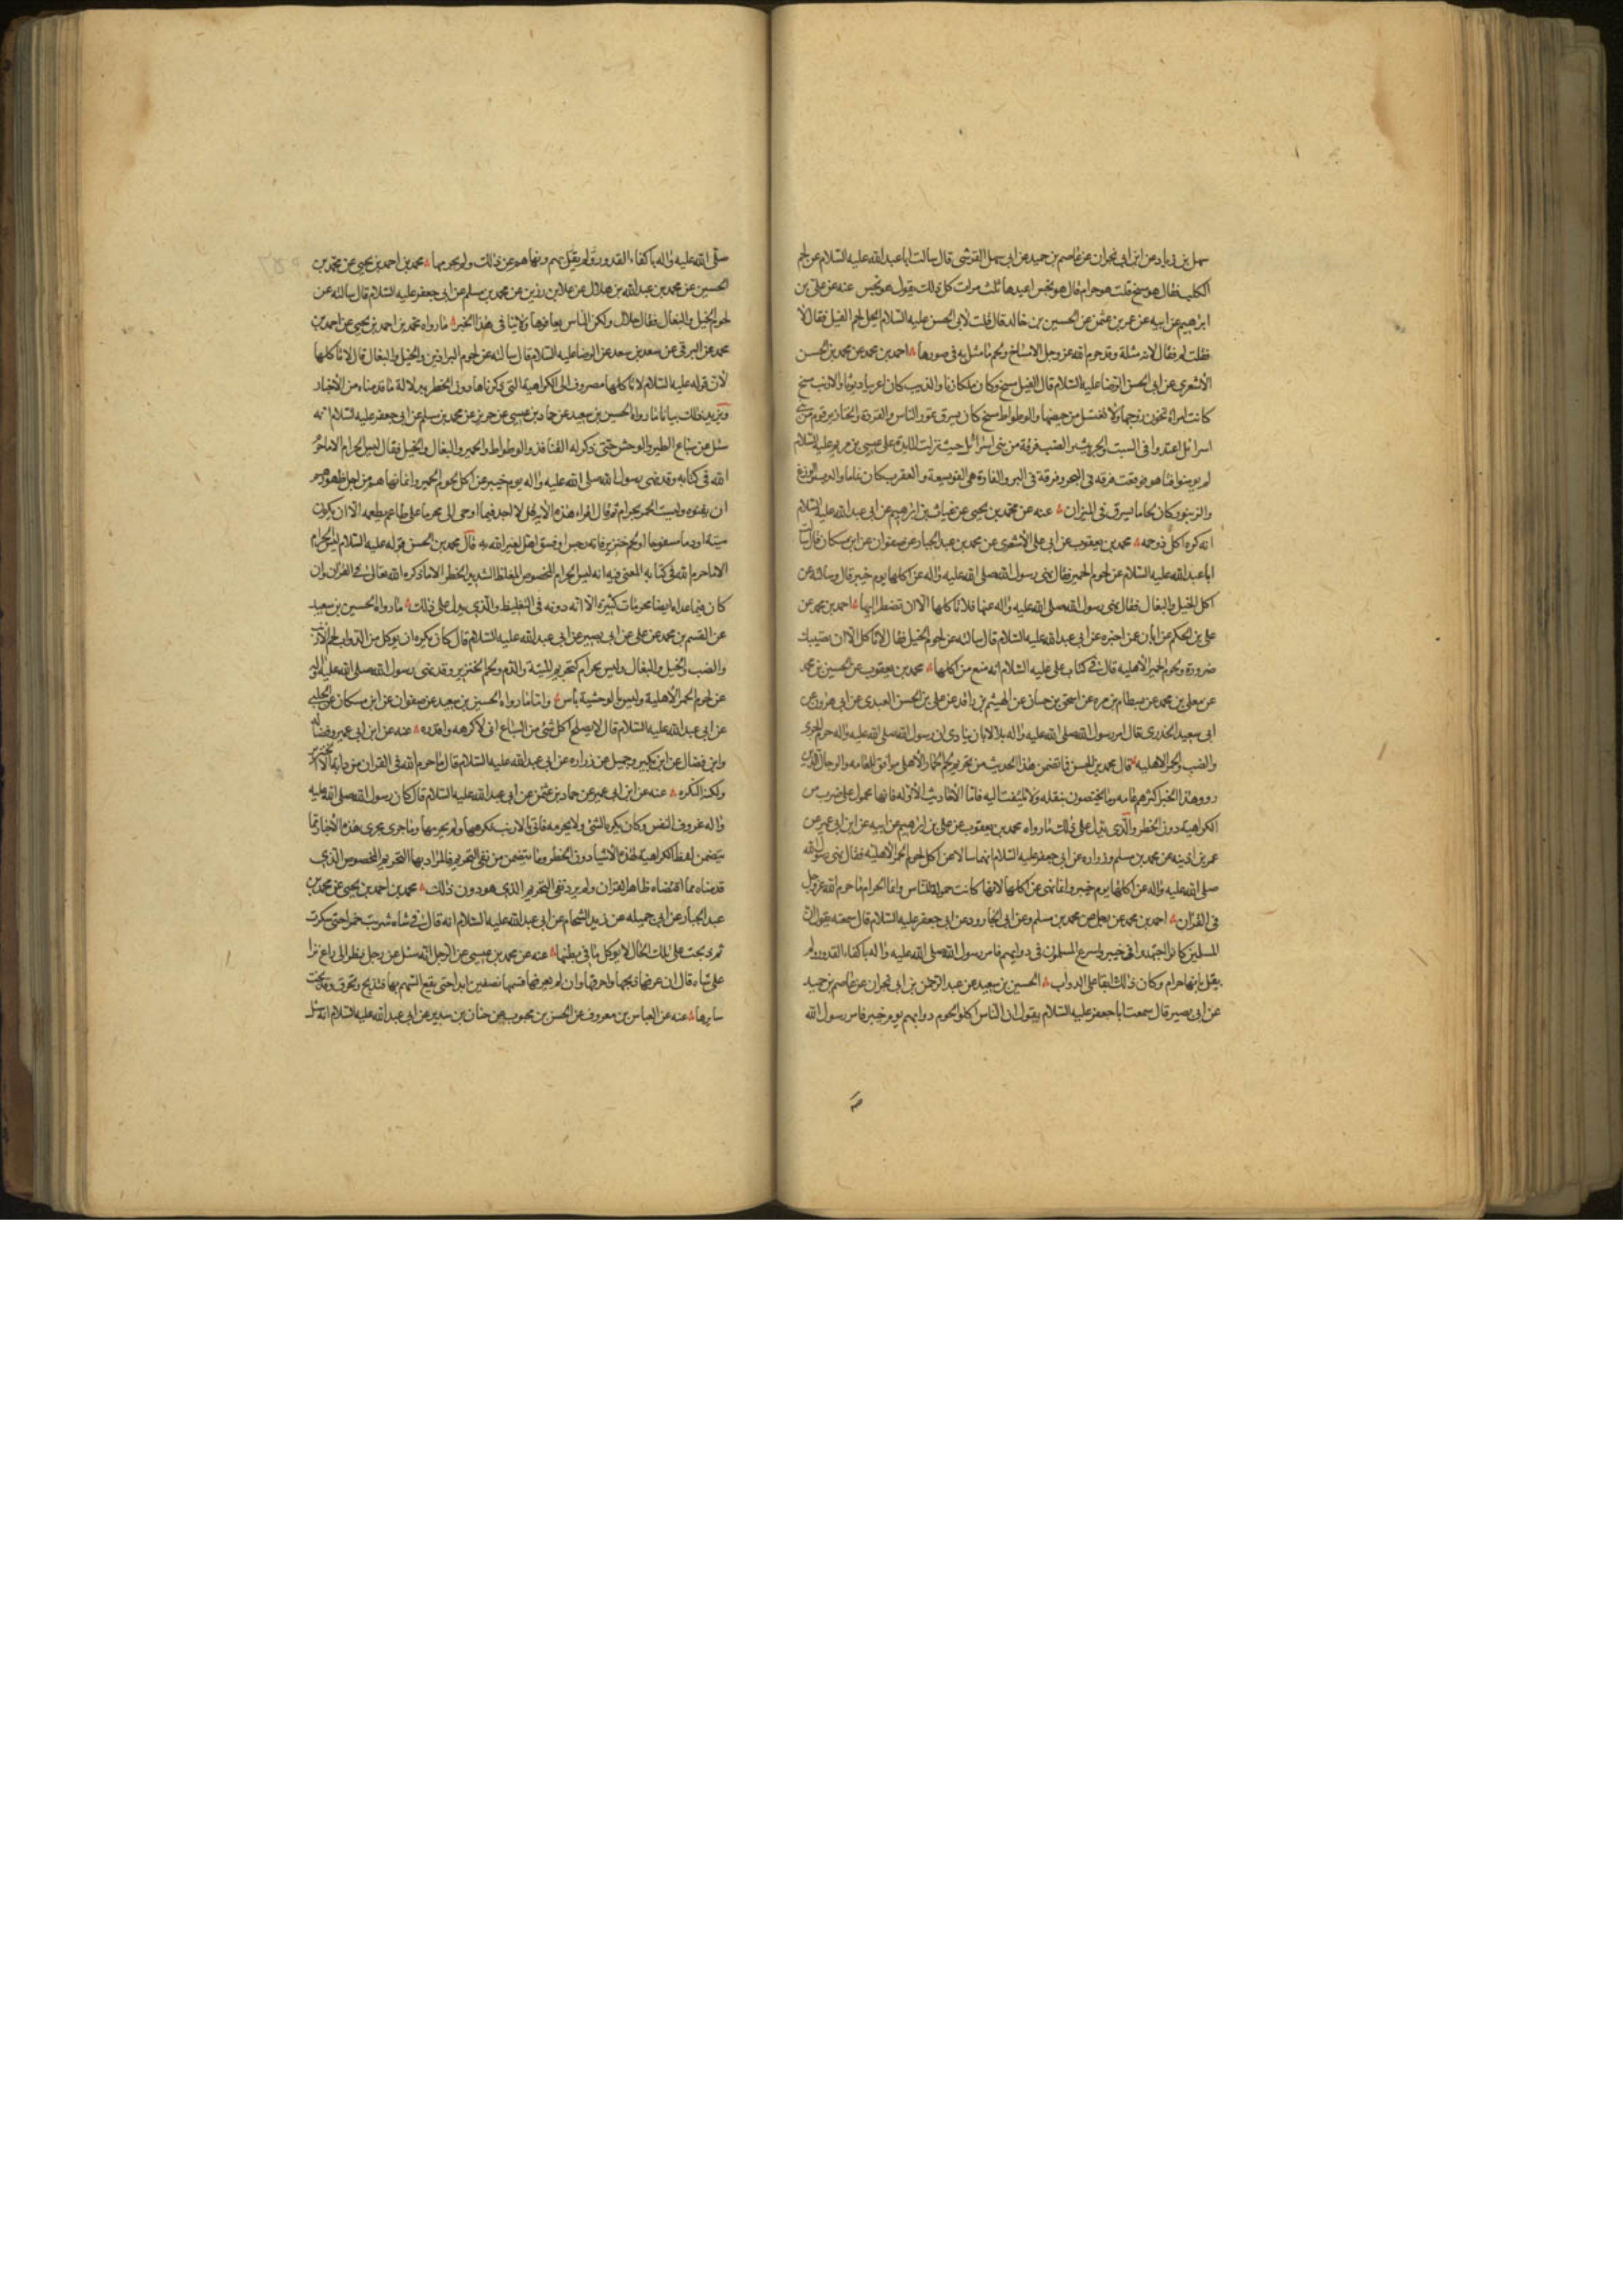 سهل بن زياد عن ابن ابى نجران عن عاصم بن حميد عن ابى سهل القرشى قال سالت ابا عبدالله عليه السلام عن لحم
الكلب فقال هو مسخ قلت هو حرام قال هو نجس اعيدها ثلث مرات كل ذلك يقول هو نجس عنه عن على بن
ابراهيم عن ابيه عن عمر بن عثمن عن الحسين بن خالد قال قلت لابى الحسن عليه السلام ايحل لحم الفيل فقال لا
فقلت لم فقال لانه مثلة وقد حرم الله عز وجل الامساخ ولحم ما مثل به فى صورها احمد بن محمد عن محمد بن الحسن
الأشعرى عن ابى الحسن الرضا عليه السلام قال الفيل مسخ وكان ملكا زنا والذيب كان اعرابيا ديوثا والارنب مسخ
كانت امراة تخون زوجها ولا تغتسل من حيضها والوطواط مسخ كان يسرق تمور الناس والقردة والخنازير قوم من بنى
اسرائل اعتدوا فى السبت والجريث والضب فرقة من بنى اسرائل حيث نزلت المايدة على عيسى بن مريم عليه السلام
لم يومنوا فتاهوا فوقعت فرقه فى البحر وفرقة فى البر والفارة هى الفويسقة والعقرب كان نماما والدب والوزغ
والزنبور كان لحاما يسرق فى الميزان عنه عن محمد بن يحيى عن غياث بن ابراهيم عن ابى عبدالله عليه السلام
انه كره اكل ذو حمه محمد بن يعقوب عن ابى على الأشعرى عن محمد بن عبد الجبار عن صفوان عن ابن مسكان قال سالت
ابا عبدالله عليه السلام عن لحوم الحمير فقال نهى رسول الله صلى الله عليه وآله عن اكلها يوم خيبر قال وسالته عن
اكل الخيل والبغال فقال نهى رسول الله صلى الله عليه وآله عنها فلا تاكلها الا ان تضطر اليها احمد بن محمد عن
على بن الحكم عن ابان عن اخبره عن ابى عبد الله عليه السلام قال سالته عن لحوم الخيل فقال لا تاكل الا ان تصيبك
ضرورة ولحوم الحمر الأهليه قال فى كتاب على عليه السلام انه منع من اكلها محمد بن يعقوب عن الحسين بن محمد
عن معلى بن محمد عن بسطام بن مره عن اسحق بن حسان عن الهيثم بن واقد عن على بن الحسن العبدى عن ابى هرون عن
ابى سعيد الخدرى قال امر رسول الله صلى الله عليه وآله بلالا بان ينادى ان رسول الله صلى الله عليه وآله حرم الجرى
والضب والحمر الاهليه قال محمد بن الحسن فما تضمن هذا الحديث من تحريم لحم الحمار الأهلى موافق للعامه والرجال الذين
رووا هذا الخبر اكثرهم عامه وما يختصون بنقله ولا يلتفت اليه فاما الأحاديث الأوله فانها محمول على ضرب من
الكراهية دون الحظر والذى يدل على ذلك ما رواه محمد بن يعقوب عن على بن ابراهيم عن ابيه عن ابن ابى عمير عن
عمر بن اذينه عن محمد بن مسلم وزراره عن ابى جعفر عليه السلام انهما سالاه عن اكل لحوم الحمر الأهليه فقال نهى رسول الله
صلى الله عليه وآله عن اكلها يوم خيبر وانما نهى عن اكلها لانها كانت حموله للناس وانما الحرام ما حرم الله عز وجل
فى القرآن احمد بن محمد عن رجل عن محمد بن مسلم وعن ابى الجارود عن ابى جعفر عليه السلام قال سمعته يقول ان
المسلمين كانوا اجتهدوا فى خيبر واسرع المسلمون فى دوابهم فامر رسول الله صلى الله عليه وآله باكفاء القدور ولم
يقل بانها حرام وكان ذلك ابقا على الدواب الحسين بن سعيد عن عبد الرحمن بن ابى نجران عن عاصم بن حميد
عن ابى بصير قال سمعت ابا جعفر عليه السلام يقول ان الناس اكلوا لحوم دوابهم يوم خيبر فامر رسول الله
صلى الله عليه وآله باكفاء القدور ولم يقل بهم ونهاهم عن ذلك ولم يحرمها محمد بن احمد بن يحيى عن محمد بن
الحسين عن محمد بن عبدالله بن هلال عن علا بن رزين عن محمد بن مسلم عن ابى جعفر عليه السلام قال سالته عن
لحوم الخيل والبغال فقال حلال ولكن الناس يعافونها ولا ينافى هذا الخبر ما رواه محمد بن احمد بن يحيى عن احمد بن
محمد عن البرقى عن سعد بن سعد عن الرضا عليه السلام قال سالته عن لحوم البراذين والخيل والبغال قال لا تاكلها
لأن قوله عليه السلام لا تاكلها مصروف الى الكراهية التى ذكرناها دون الحظر بدلالة ما قدمناه من الأخبار
ويزيد ذلك بيانا ما رواه الحسين بن سعيد عن حماد بن عيسى عن حريز عن محمد بن مسلم عن ابى جعفر عليه السلام انه
سئل عن سباع الطير والوحش حتى ذكر له القنافذ والوطواط والحمير والبغال والخيل فقال ليس الحرام الا ما حرم
الله فى كتابه وقد نهى رسول الله صلى الله عليه وآله يوم خيبر عن اكل لحوم الحمير وانما نهاهم من اجل ظهورهم
ان يفنوه وليست الحمر بحرام ثم قال اقراء هذه الآيه قل لا اجد فيما اوحى الى محرما على طاعم يطعمه الا ان يكون
ميتة او دما مسفوحا او لحم خنزير فانه رجس او فسق اهل لغير الله به قال محمد بن الحسن قوله عليه السلام ليس الحرام
الا ما حرم الله فى كتابه المعنى فيه انه ليس الحرام المخصوص المغلظ الشديد الحظر الا ما ذكره الله تعالى فى القرآن وان
كان فيما عداه ايضا محرمات كثيرة الا انه دونه فى التغليظ والذى يدل على ذلك ما رواه الحسين بن سعيد
عن القسم بن محمد عن على عن ابى بصير عن ابى عبد الله عليه السلام قال كان يكره ان يوكل من الدواب لحم الأرنب
والضب والخيل والبغال وليس بحرام كتحريم الميتة والدم ولحم الخنزير وقد نهى رسول الله صلى الله عليه وآله
عن لحوم الحمر الأهلية وليس بالوحشية بأس واما ما رواه الحسين بن سعيد عن صفوان عن ابن مسكان عن الحلبى
عن ابى عبدالله عليه السلام قال لا يصلح اكل شئ من السباع انى لاكرهه واقذره عنه عن ابن ابى عمير وفضالة
وابن فضال عن ابن بكير وجميل عن زراره عن ابى عبدالله عليه السلام قال ما حرم الله فى القرآن من دابة الا الخنزير
ولكنه النكره عنه عن ابن ابى عمير عن حماد بن عثمن عن ابى عبدالله عليه السلام قال كان رسول الله صلى الله عليه
وآله عزوف النفس وكان يكره الشئ ولا يحرمه فاتى بالارنب فكرهها ولم يحرمها وما جرى مجرى هذه الأخبار مما
يتضمن لفظ الكراهية لهذه الاشياء دون الحظر وما يتضمن من نفى التحريم فالمراد بها التحريم المخصوص الذى
قدمناه مما اقتضاه ظاهر القرآن ولم يرد نفى التحريم الذى هو دون ذلك محمد بن احمد بن يحيى عن محمد بن
عبد الجبار عن ابى جميله عن زيد الشحام عن ابى عبدالله عليه السلام انه قال فى شاه شربت خمرا حتى سكرت
ثم ذبحت على تلك الحال لا يوكل ما فى بطنها عنه عن محمد بن عيسى عن الرجل انه سئل عن رجل نظر الى راع نزا
على شاه قال ان عرفها ذبحها واحرقها وان لم يعرفها قسمها نصفين ابدا حتى يقع السهم بها فتذبح وتحرق وقد نجت
سايرها عنه عن العباس بن معروف عن الحسن بن محبوب عن حنان بن سدير عن ابى عبدالله عليه السلام انه سئل